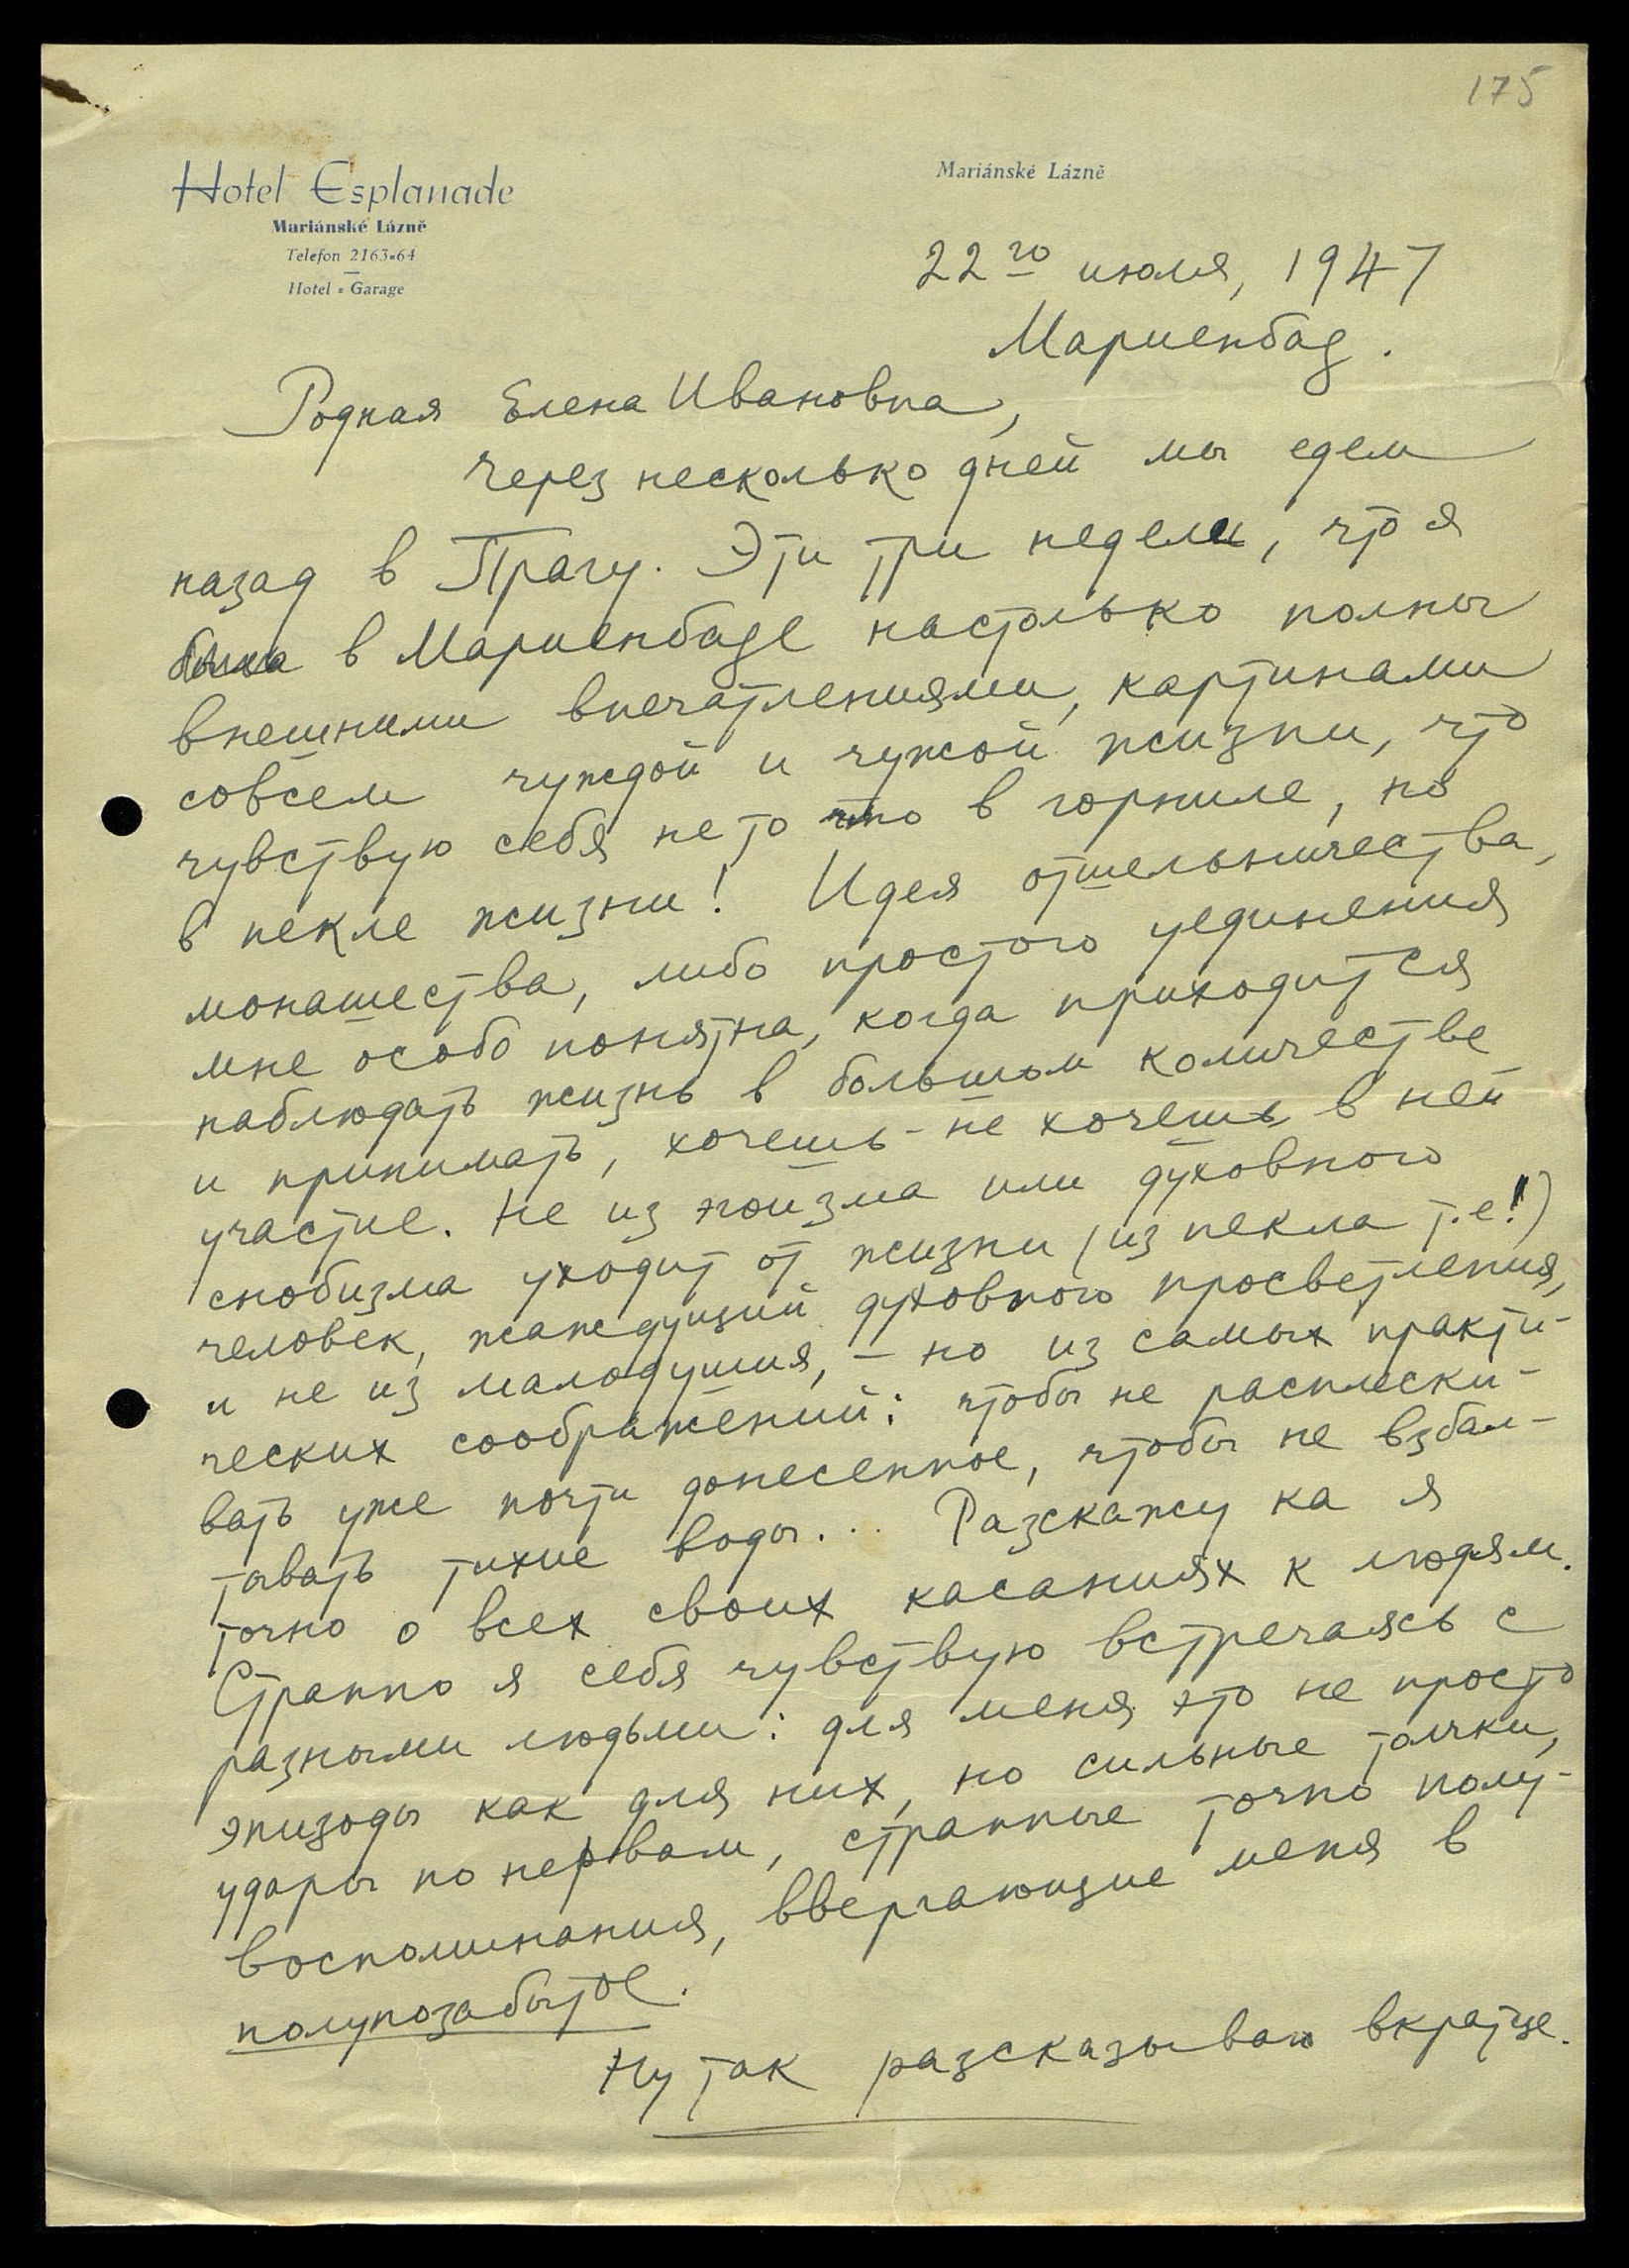 175
Hotel Esplanade
Mariánské Lázně
Telefon 2163-64
Hotel = Garage
Mariánské Lázně
22го июля, 1947
Мариенбад.
Родная Елена Ивановна,
Через несколько дней мы едем
назад в Прагу. Эти три недели, что я
была в Мариенбаде настолько полны
внешними впечатлениями, картинами
совсем чуждой и чужой жизни, что
чувствую себя не то что в горниле, но
в пекле жизни! Идея отшельничества,
монашества, либо простого уединения
мне особо понятна, когда приходится
наблюдать жизнь в большом количестве
и принимать, хочешь-не хочешь в ней
участие. Не из эгоизма или духовного
снобизма уходит от жизни (из пекла т.е!)
человек, жаждущий духовного просветления,
и не из малодушия, - но из самых практи-
ческих соображений: чтобы не расплески-
вать уже почти донесенное, чтобы не взбал-
тывать тихие воды... Разскажу ка я
точно о всех своих касаниях к людям.
Странно я себя чувствую встречаясь с
разными людьми: для меня это не просто
эпизоды как для них, но сильные толчки,
удары по нервам, странные точно полу-
воспоминания, ввергающие меня в
полупозабытое.
Ну так разсказываю вкратце.